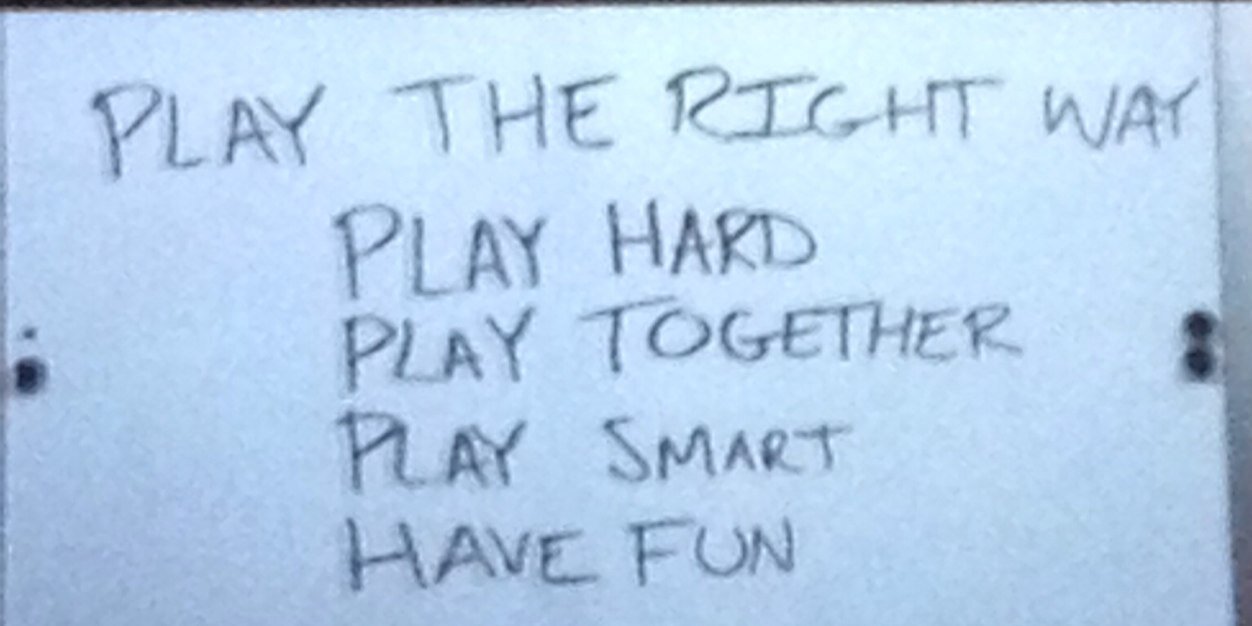 PLAY THE RIGHT WAY
PLAY HARD
PLAY TOGETHER
PLAY SMART
HAVE FUN